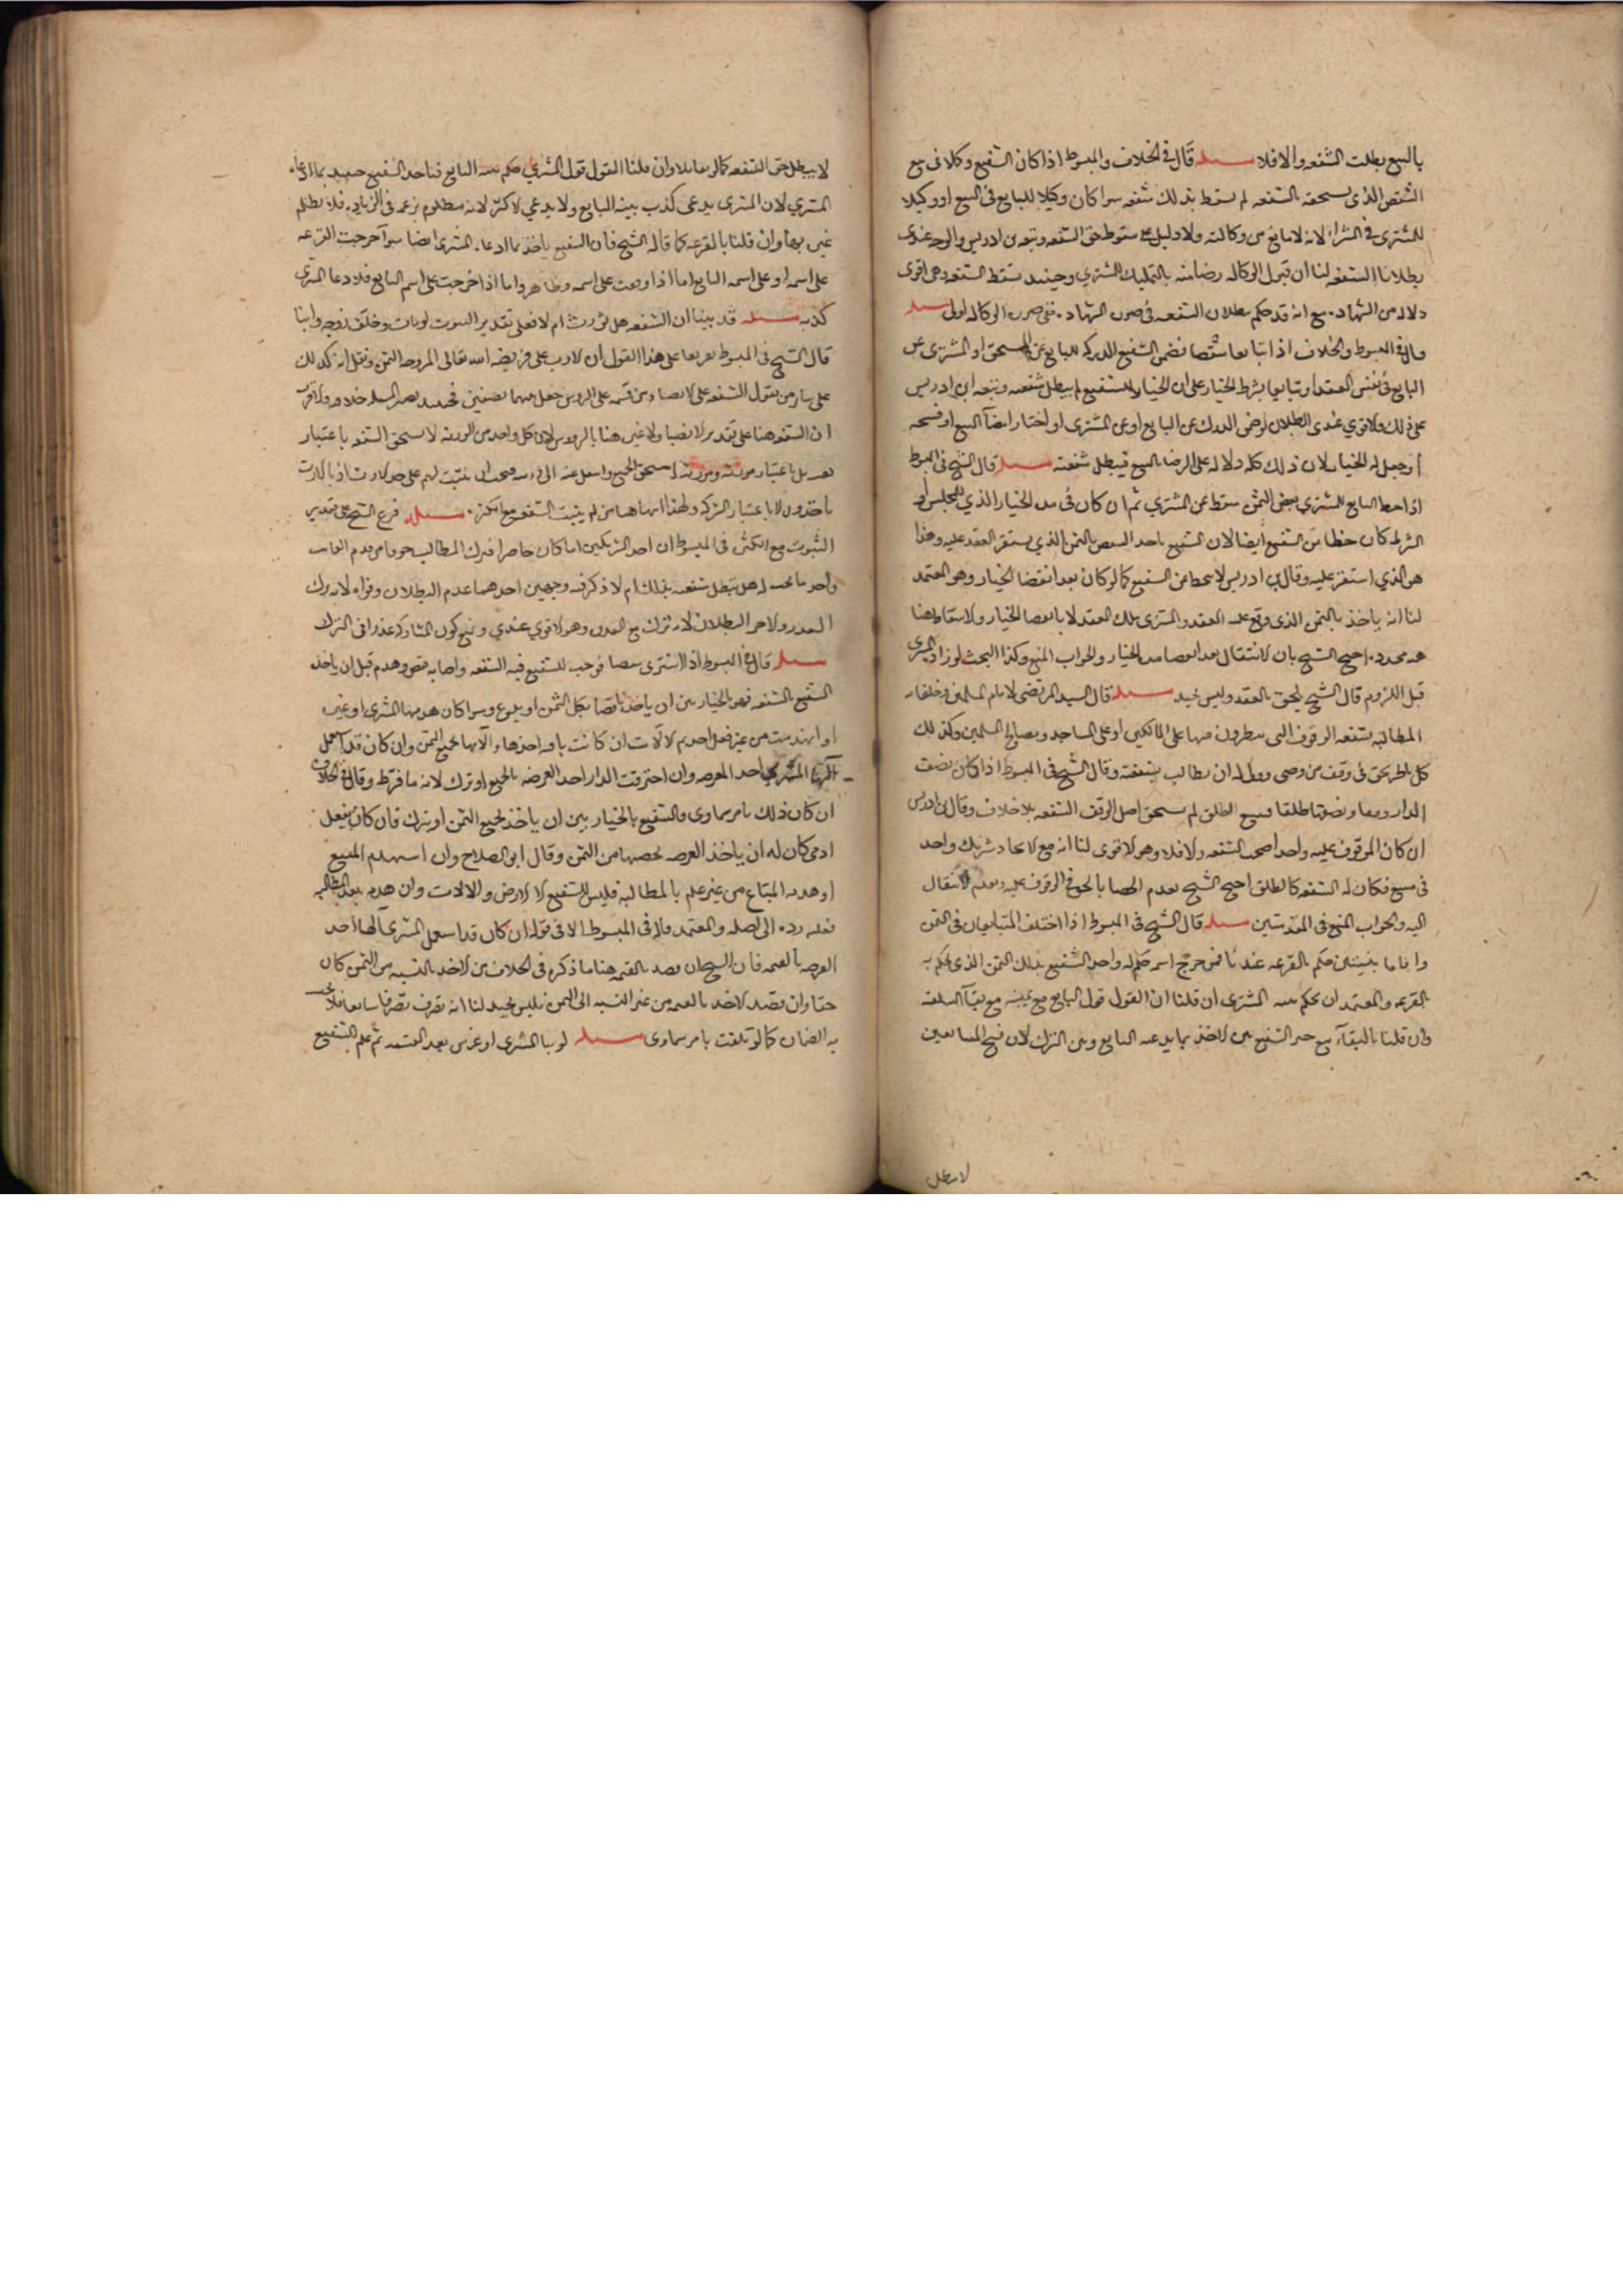 بالبيع بطلت الشفعه والا فلا مسله قال في الخلاف والمبسوط اذا كان الشفيع وكلا فى بيع
الشقص الذى يستحقه بالشفعه لم يسقط بذلك شفعته سوا كان وكيلا للبايع فى البيع او وكيلا
للمشترى فى الشراء لانه لا مانع من وكالته ولا دليل على سقوط حق الشفعه وتبعه بن ادريس والوجه عندى
بطلان الشفعه لنا ان قبول الوكاله رضا منه بالتمليك للمشتري وحينيد تسقط الشفعه وهى اقوى
دلاله من الشهاده مع انه قد حكم ببطلان الشفعه فى صورة الشهاده ففى صورة الوكاله اولى مسله
قال فى المبسوط والخلاف اذا تبايعا شقصا فضمن الشفيع الدرك للبايع عن المستحق او المشترى عن
البايع فى نفس العقد او تبايعا بشرط الخيار على ان الخيار للشفيع لم يبطل شفعته وتبعه ابن ادريس
على ذلك والاقوي عندى البطلان لو ضمن الدرك عن البايع او عن المشترى او اختار امضا البيع او فسخه
او جعل له الخيار لان ذلك كله دلاله على الرضا بالبيع فيبطل شفعته مسله قال الشيخ فى المبسوط
اذا حط البايع للمشتري بعض الثمن سقط عن المشتري ثم ان كان فى مدة الخيار الذي للمجلس او
الشرط كان حطا من الشفيع ايضا لان الشفيع ياخذ الشقص بالثمن الذي يستقر العقد عليه وهذا
هو الذي استقر عليه وقال بن ادريس لا يحط عن الشفيع كما لو كان بعد انقضا الخيار وهو المعتمد
لنا انه ياخذ بالثمن الذى وقع عليه العقد والمشترى ملك بالعقد لا بانقضا الخيار والاسقاط هنا
هبه مجدده احتج الشيخ بان الانتقال بعد انقضا مدة الخيار والجواب المنع وكذا البحث لو زاد المشترى
قبل اللزوم قال الشيخ يلحق بالعقد وليس بجيد مسله قال السيد المرتضى لامام المسلمين وخلفايه
المطالبه بشفعه الوقوف التى ينظرون فيها على المساكين او على المساجد ومصالح المسلمين وكذلك
كل ناظر بحق فى وقف من وصى وولى له ان يطالب بشفعته وقال الشيخ فى المبسوط اذا كان نصف
الدار وقفا ونصفها طلقا فبيع الطلق لم يستحق اهل الوقف الشفعه بلا خلاف وقال بن ادريس
ان كان الموقوف عليه واحدا صحت الشفعه والا فلا وهو الاقوى لنا انه مع الاتحاد شريك واحد
فى مبيع فكان له الشفعه كالطلق احتج الشيخ بعدم انحصار الحق فى الموقوف عليه وبعدم الانتقال
اليه والجواب المنع فى المقدمتين مسله قال الشيخ فى المبسوط اذا اختلف المتبايعان فى الثمن
واقاما بينتين حكم بالقرعه عندنا فمن خرج اسمه حكم له واخذ الشفيع بذلك الثمن الذى يحكم به
بالقرعه والمعتمد ان يحكم ببينه المشترى ان قلنا ان القول قول البايع مع يمينه مع بقا السلعه
وان قلنا بالبقاء مع تخير الشفيع بين الاخذ بما يدعيه البايع وبين الترك لان فسخ المتبايعين
لا يبطل
لا يبطل حق الشفعه كما لو تقايلا وان قلنا القول قول المشترى حكم ببينه البايع فياخذ الشفيع حينيد بما ادعاه
المشتري لان المشترى يدعى كذب بينه البايع ولا يدعي الاكثر لانه مظلوم بزعمه فى الزياده فلا يظلم
غيره بها وان قلنا بالقرعه كما قاله الشيخ فان الشفيع ياخذ بما ادعاه المشترى ايضا سوآ خرجت القرعه
على اسمه او على اسم البايع اما اذا وقعت على اسمه فظاهر واما اذا خرجت على اسم البايع فلادعا المشترى
كذبه مسله قد بينا ان الشفعه هل تورث ام لا فعلى تقدير الثبوت لو مات وخلف زوجه وابنا
قال الشيخ فى المبسوط تفريعا على هذا القول ان الارث على فريضه الله تعالى للزوجه الثمن ونقل انه كذلك
على راى من يقول الشفعه على الانصباء ومن قسمه على الروس جعل بينهما نصفين فحينيد يصير المسله خلافا والاقرب
ان الشفعه هنا على تقدير الانصبا ولا عبره هنا بالروس لان كل واحد من الورثه لا يستحق الشفعه باعتبار
نفسه بل باعتبار مورثه ومورثه يستحق الجميع وانتقل عنه الى ورثته فيجب ان يثبت لهم على حد الارث اذ بالارث
ياخذون لا باعتبار الشركه ولهذا اثبتها هنا من لم يثبت الشفعه مع الكثره مسله فرع الشيخ على تقدير
الثبوت مع الكثره فى المبسوط ان احد الشريكين اذا كان حاضرا فترك المطالبه خوفا من قدوم الغايب
واخذ ما بيده هل تبطل شفعته بذلك ام لا ذكر فيه وجهين احدهما عدم البطلان وقواه لانه ترك
لعذر والاخر البطلان لانه ترك مع القدره وهو الاقوي عندي ونمنع كون المشاركه عذرا فى الترك
مسله قال فى المبسوط اذا اشترى شقصا فوجب للشفيع فيه الشفعه واصابه نقص وهدم قبل ان ياخذ
الشفيع بالشفعه فهو بالخيار بين ان ياخذ ناقصا بكل الثمن او يدع وسوا كان هدمها المشترى او غيره
او انهدمت من غير فعل احد ثم الالات ان كانت باقيه اخذها والاتها بجميع الثمن وان كان قد استعمل
الاتها المشترى اخذ العرصه وان احترقت الدار اخذ العرصه بالجميع او ترك لانه ما فرط وقال فى الخلاف
ان كان ذلك بامر سماوى فالشفيع بالخيار بين ان ياخذ بجميع الثمن او يترك فان كان بفعل
ادمى كان له ان ياخذ العرصه بحصتها من الثمن وقال ابو الصلاح وان استهدم المبيع
او هدمه المبتاع من غير علم بالمطالبه فليس للشفيع الا الارض والالات وان هدمه بعد المطالبه
فعليه رده الى اصله والمعتمد ما قاله فى المبسوط الا فى قوله ان كان قد استعمل المشترى التها اخذ
العرصه بالقيمه فان الشيخ ان قصد بالقيمه هنا ما ذكره فى الخلاف من الاخذ بالنسبه من الثمن كان
حقا وان قصد الاخذ بالقيمه من غير النسبه الى الثمن فليس بجيد لنا انه تصرف تصرفا سايغا فلا يجب
به الضمان كما لو تلفت بامر سماوى مسله لو بنا المشترى او غرس بعد القسمه ثم علم الشفيع